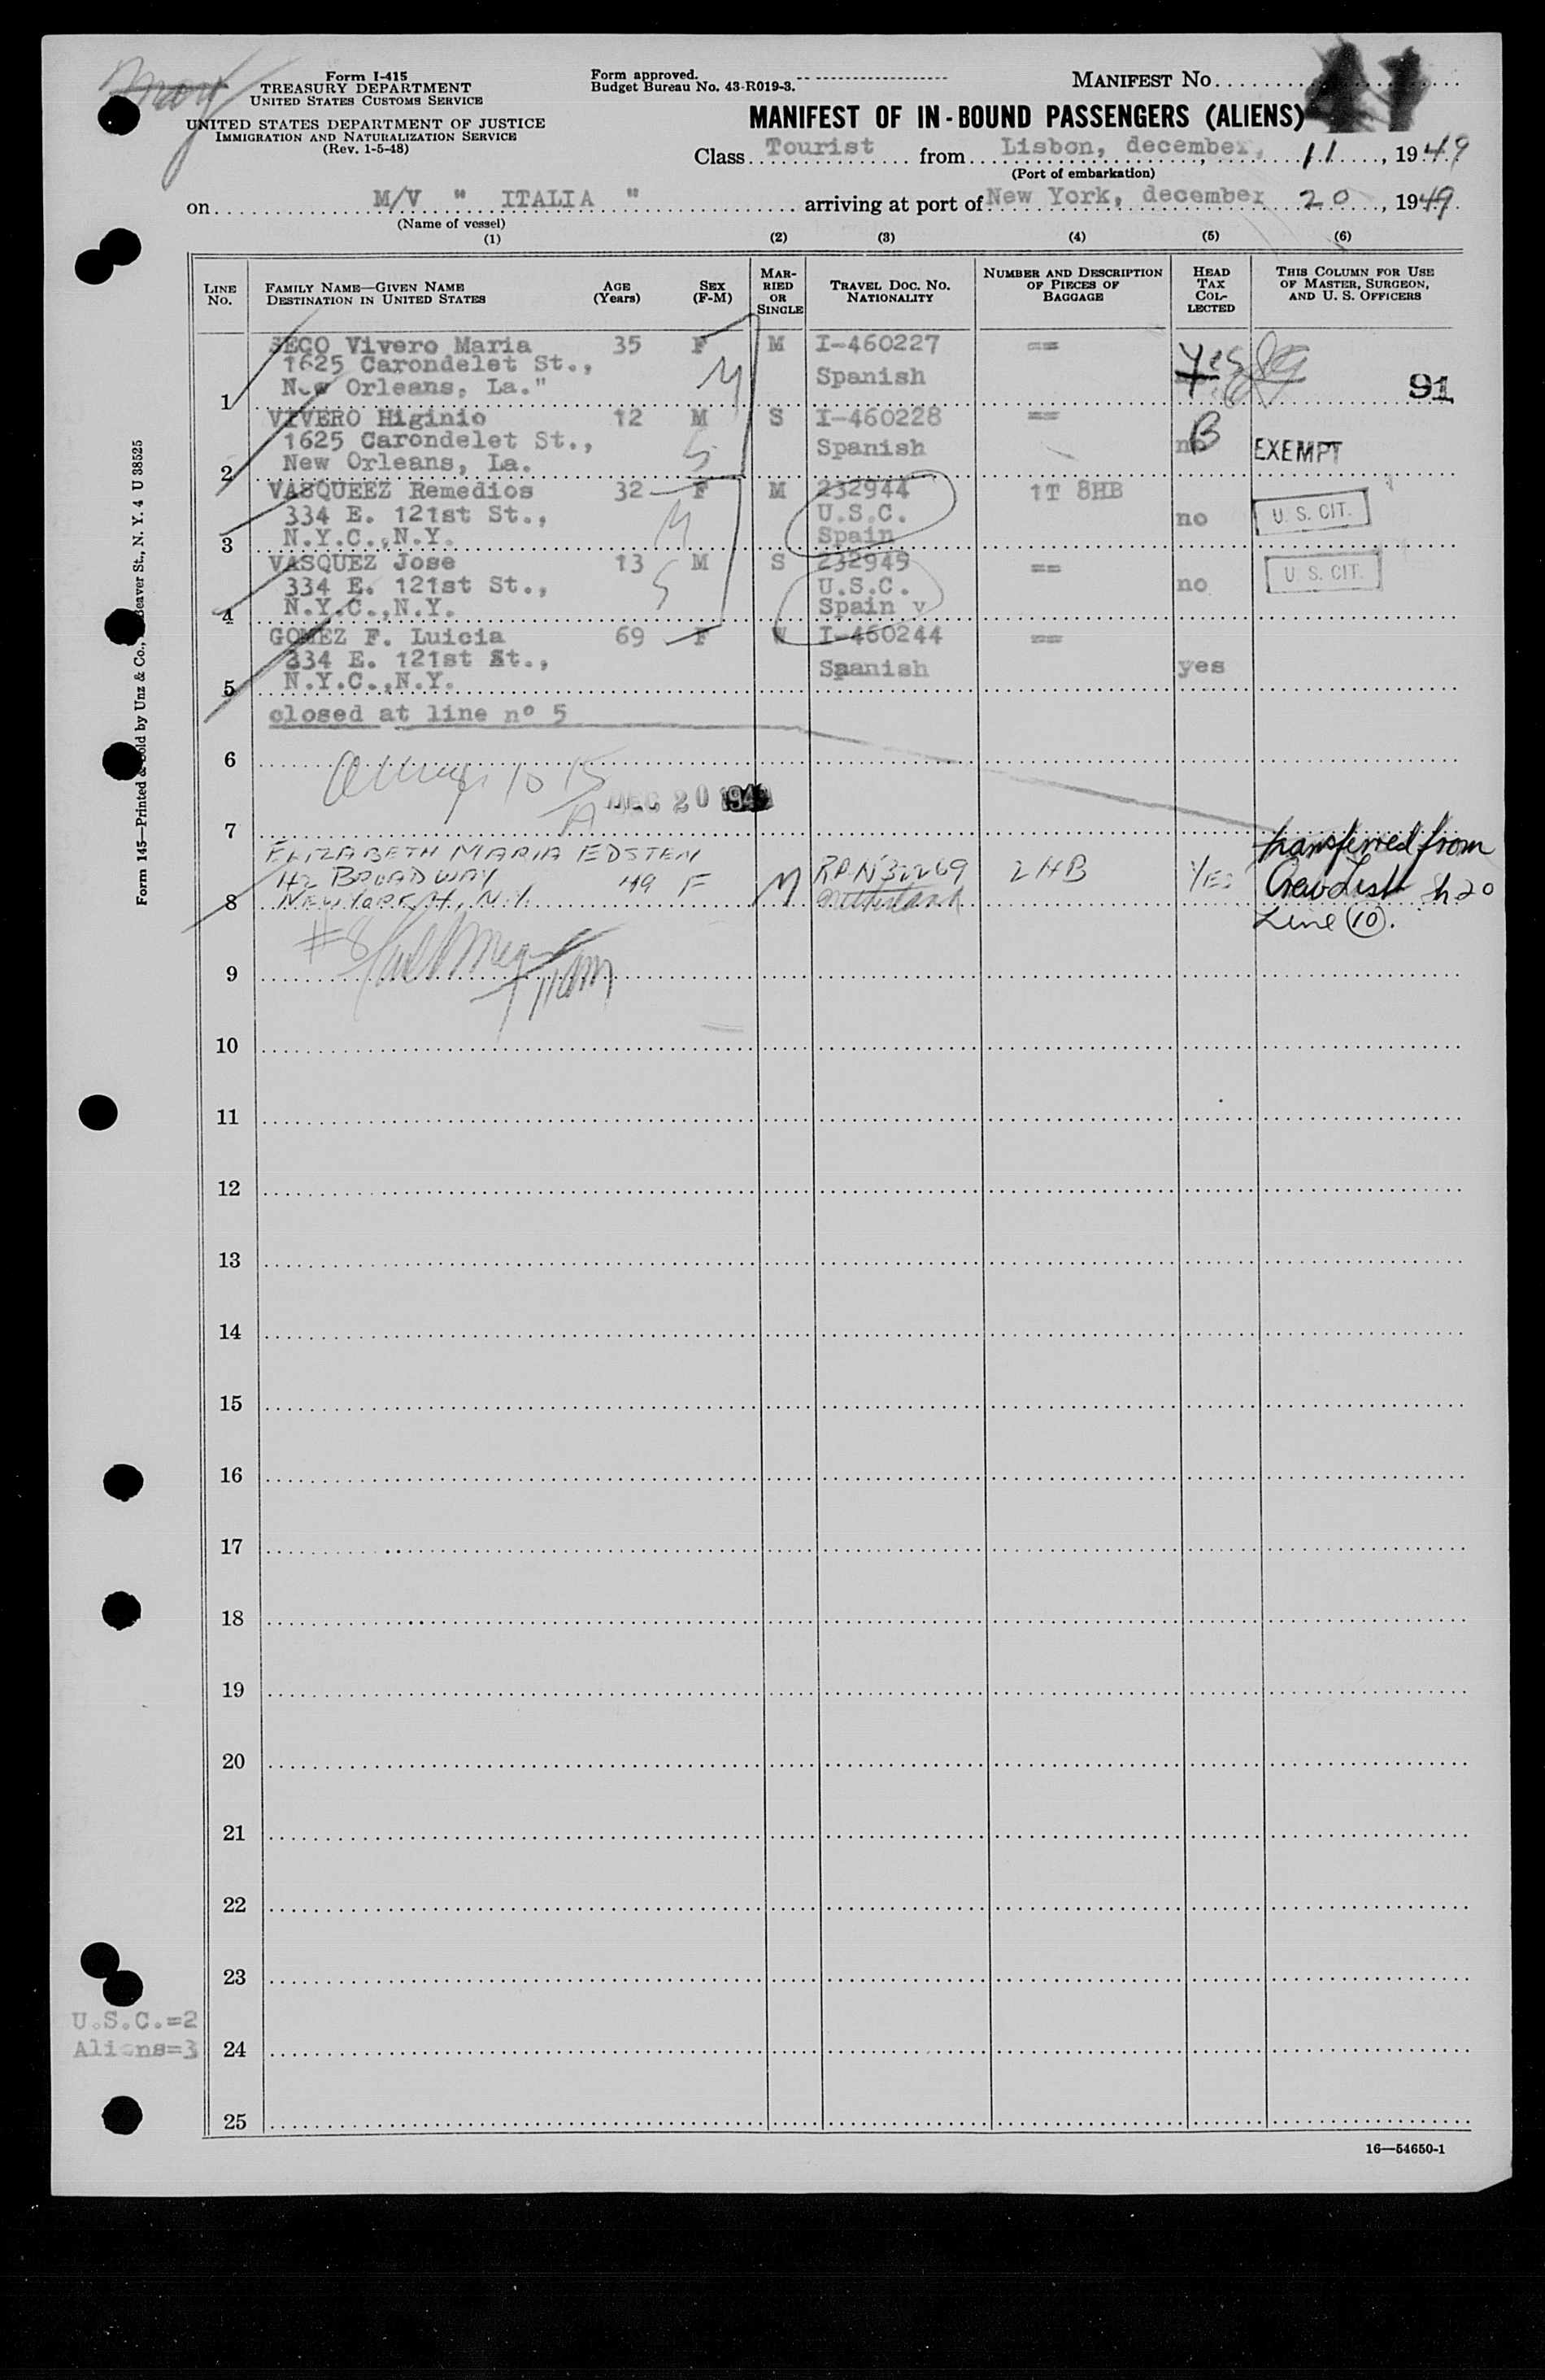 Form I-415
TREASURY DEPARTMENT
UNITED STATES CUSTOMS SERVICE
UNITED STATES DEPARTMENT OF JUSTICE
IMMIGRATION AND NATURALIZATION SERVICE
(Rev. 1-5-48)
Form approved.
Budget Bureau No. 43-R019-3.
MANIFEST No. 41
MANIFEST OF IN-BOUND PASSENGERS (ALIENS)
Class Tourist from Lisbon, december, 11, 1949
(Port of embarkation)
on M/V " ITALIA " arriving at port of New York, december 20, 1949
(Name of vessel)
(1) (2) (3) (4) (5) (6)
LINE No. FAMILY NAME—GIVEN NAME DESTINATION IN UNITED STATES AGE (Years) SEX (F-M) MARRIED OR SINGLE TRAVEL DOC. NO. NATIONALITY NUMBER AND DESCRIPTION OF PIECES OF BAGGAGE HEAD TAX COLLECTED THIS COLUMN FOR USE OF MASTER, SURGEON, AND U. S. OFFICERS
SECO Vivero Maria 35 F M I-460227 ==
1625 Carondelet St., Yes
New Orleans, La." M Spanish 91
1
VIVERO Higinio 12 M S I-460228 ==
1625 Carondelet St., S Spanish no B EXEMPT
New Orleans, La.
2
VASQUEEZ Remedios 32 F M 232944 1T 8HB
334 E. 121st St., M U.S.C. no U. S. CIT.
N.Y.C.,N.Y. Spain
3
VASQUEZ Jose 13 M S 232945 ==
334 E. 121st St., S U.S.C. no U. S. CIT.
N.Y.C.,N.Y. Spain v
4
GOMEZ F. Luicia 69 F W I-460244 ==
334 E. 121st St., Spanish yes
N.Y.C.,N.Y.
5
closed at line nº 5
6
1 to 5
DEC 20 194
7
ELIZABETH MARIA EDSTEN transferred from
42 BROADWAY 49 F M RP.N 32269 2 HB YES Crew List Sh 20
NEW YORK, 4, N.Y. Netherland
8
Line (10).
#8
9
11am
10
11
12
13
14
15
16
17
18
19
20
21
22
23
U.S.C.=2
Aliens=3
24
25
16—54650-1
Form 145—Printed & Sold by Unz & Co., Beaver St., N. Y. 4 U 38525